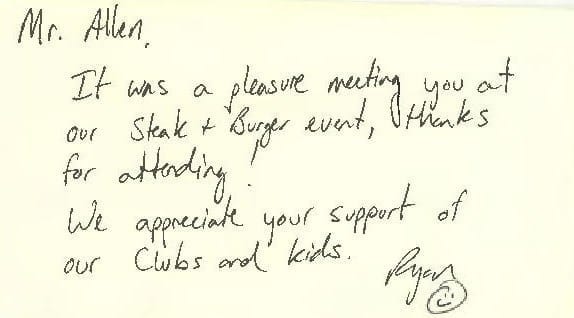 Mr. Allen,
It was a pleasure meeting you at
our Steak + Burger event, thanks
for attending!
We appreciate your support of
our Clubs and kids.
Ryan